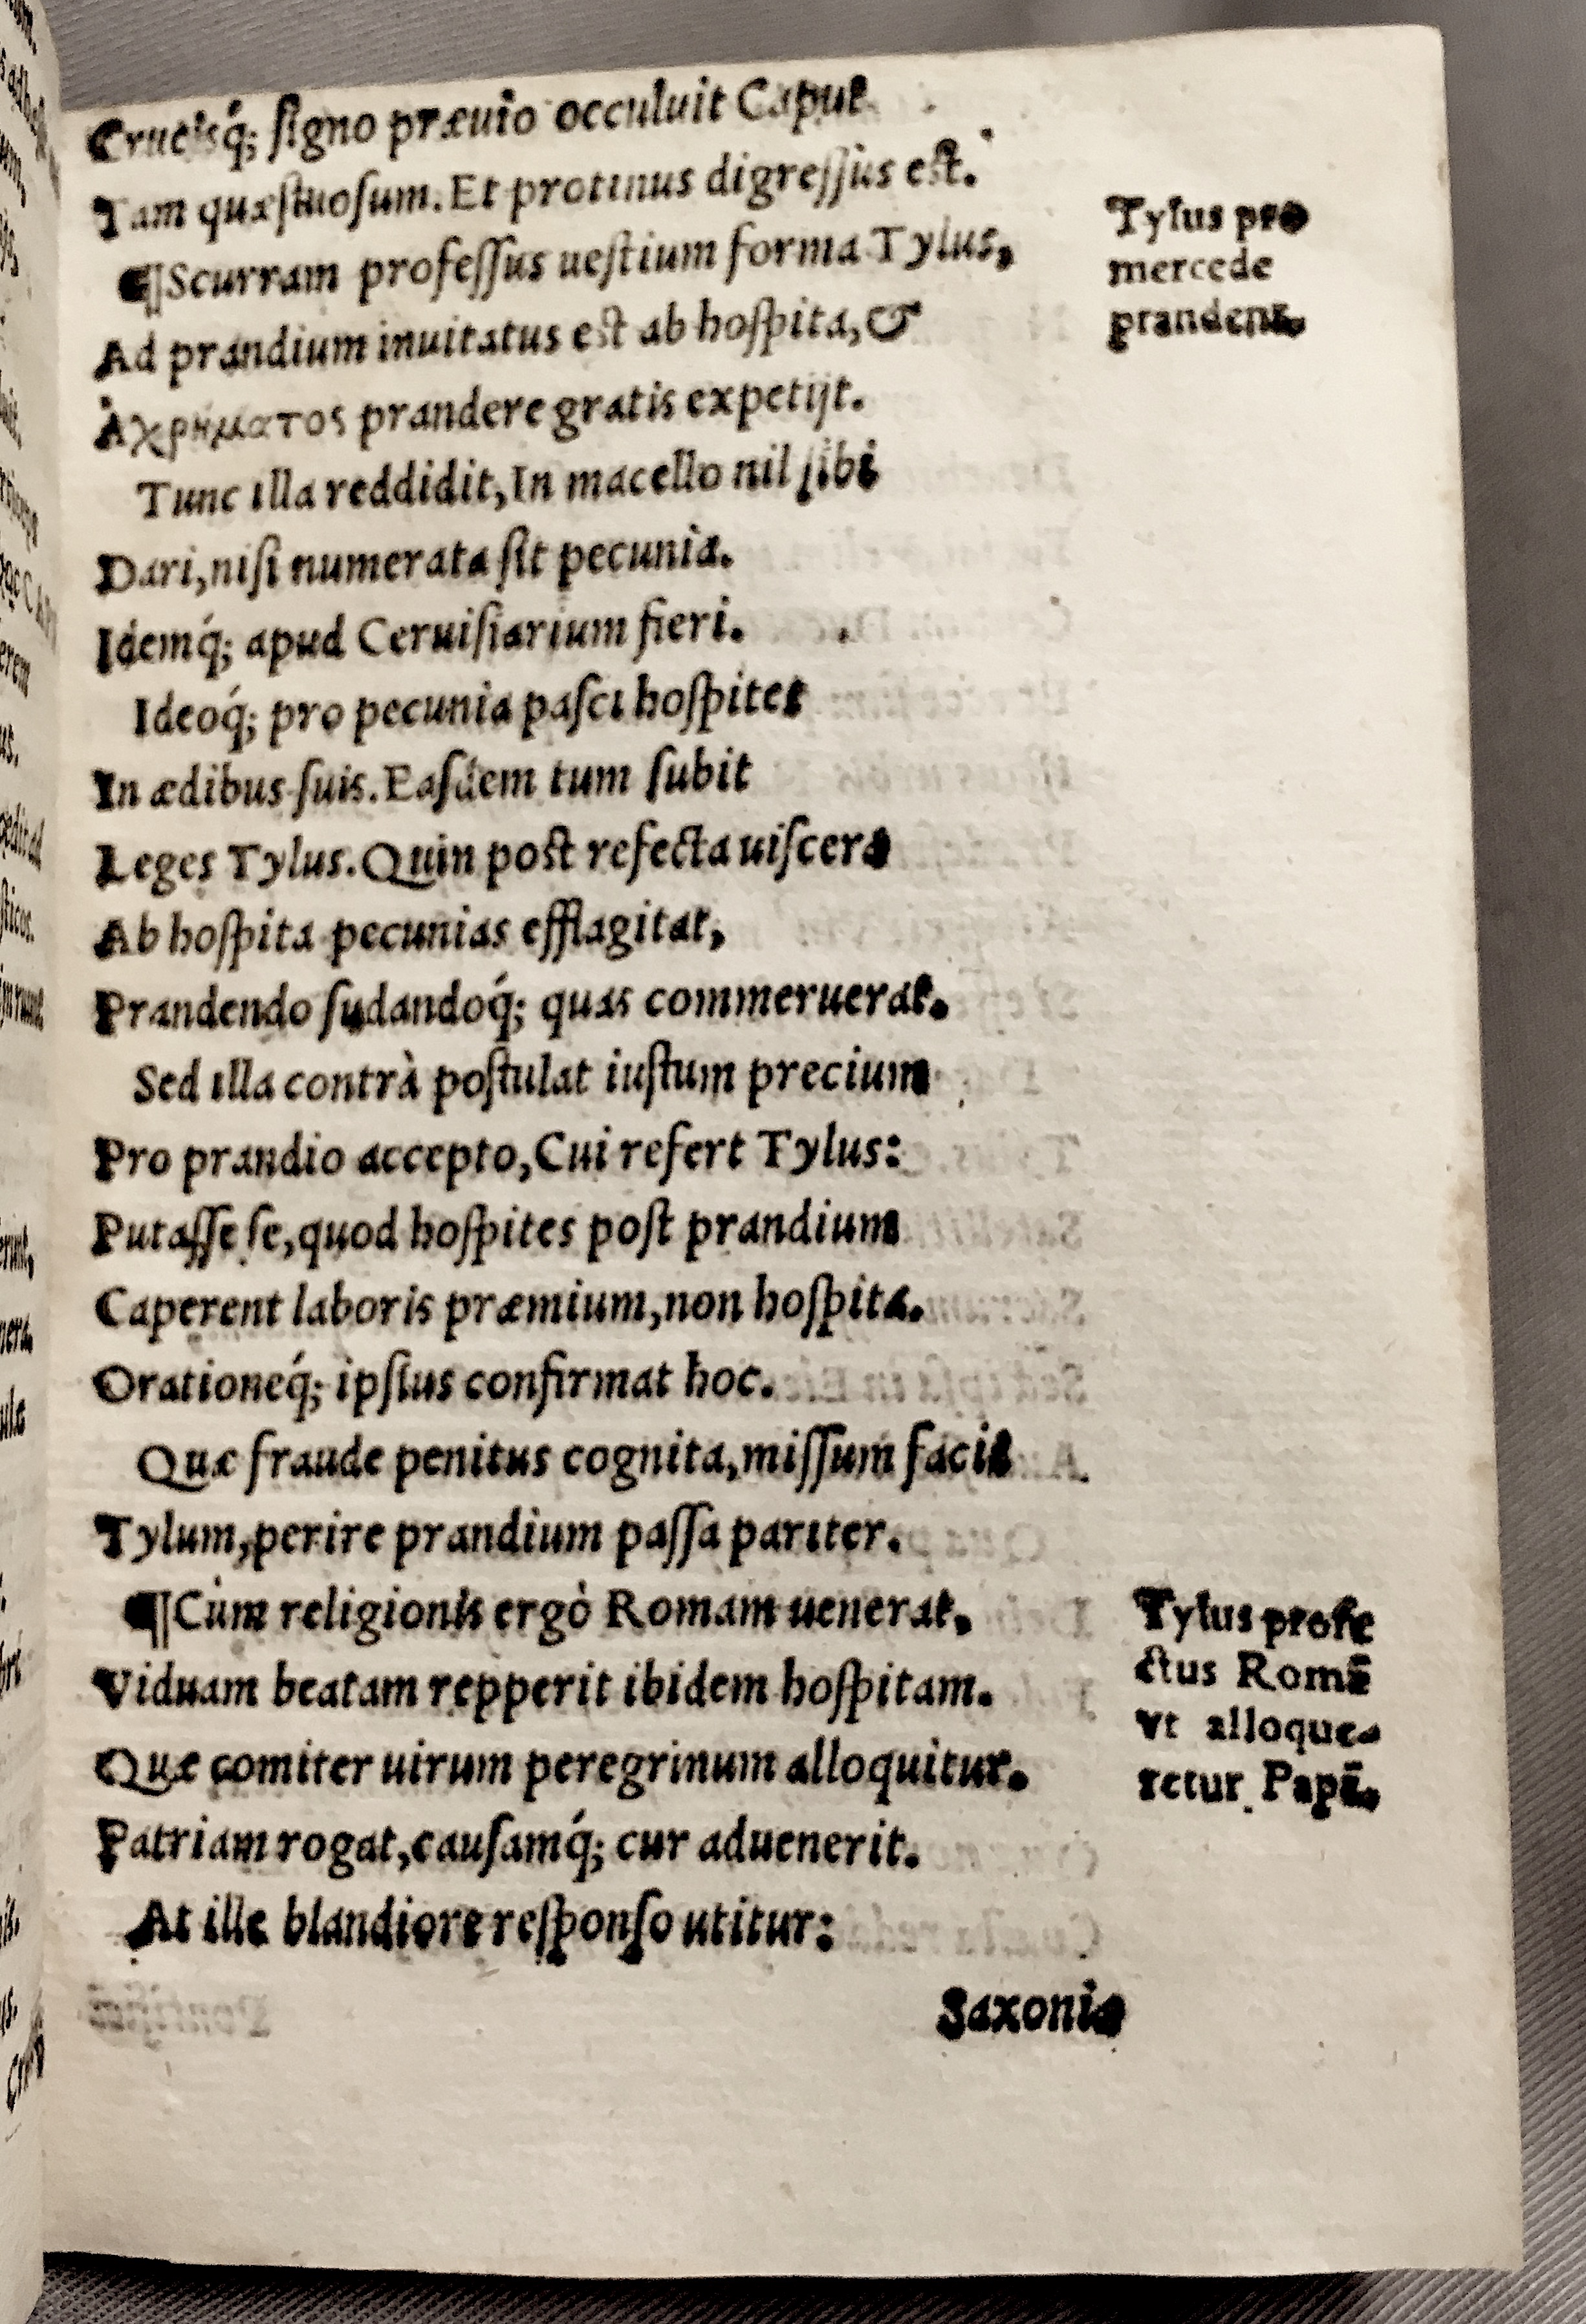 Crucisq́; ſigno præuio occuluit Caput
Tam quæſtuoſum. Et protinus digreſſus est.
¶Scurram profeſſus ueſtium forma Tylus,
Ad prandium inuitatus est ab hoſpita, &
Ἀχρήματος prandere gratis expetijt.
Tunc illa reddidit, In macello nil ſibi
Dari, niſi numerata ſit pecunia.
Idemq́; apud Ceruiſiarium fieri.
Ideoq́; pro pecunia paſci hoſpites
In ædibus suis. Eaſdem tum ſubit
Leges Tylus. Quin post refecta uiſcera
Ab hoſpita pecunias efflagitat,
Prandendo ſudandoq́; quas commeruerat.
Sed illa contrà poſtulat iuſtum precium
Pro prandio accepto, Cui refert Tylus:
Putaſſe ſe, quod hoſpites poſt prandium
Caperent laboris præmium, non hoſpita.
Orationeq́; ipſius confirmat hoc.
Quæ fraude penitus cognita, miſſum facit
Tylum, perire prandium paſſa pariter.
¶Cùm religionis ergò Romam uenerat,
Viduam beatam repperit ibidem hoſpitam.
Quæ comiter uirum peregrinum alloquitur.
Patriam rogat, cauſamq́; cur aduenerit.
At ille blandiore reſponſo utitur:
Saxonia
Tylus pro
mercede
prandens.
Tylus profe
ctus Romā
vt alloque-
retur Papā.